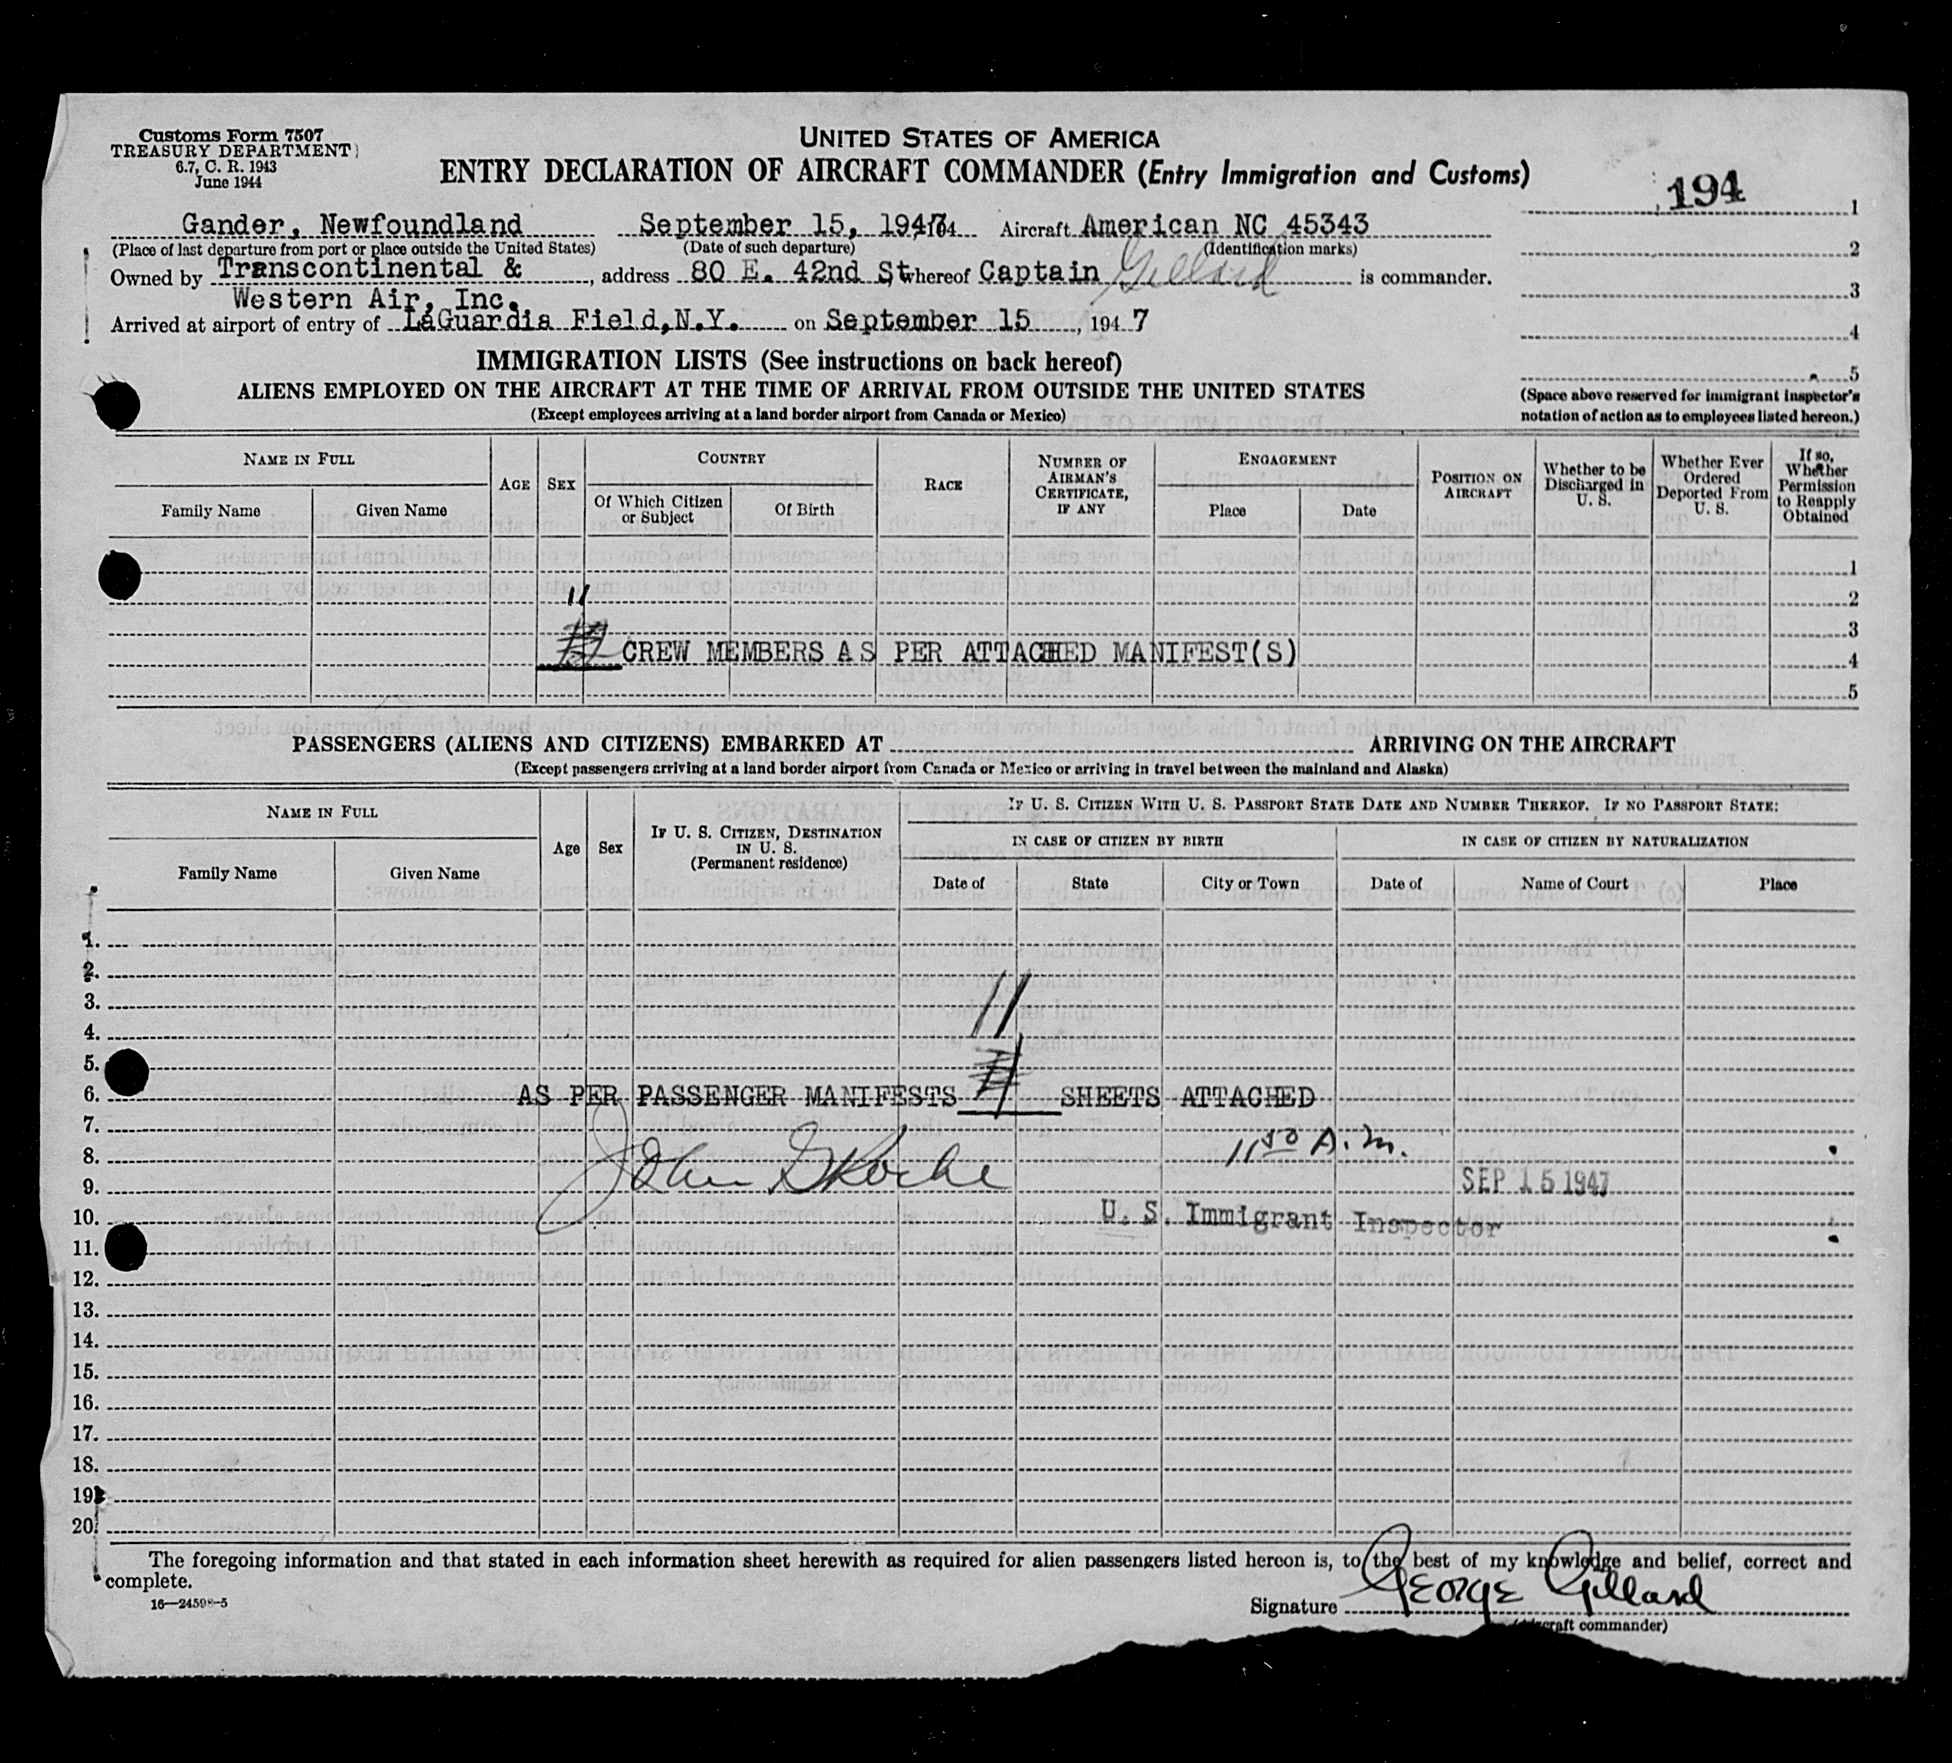 Customs Form 7507
TREASURY DEPARTMENT
6.7, C. R. 1943
June 1944
UNITED STATES OF AMERICA
ENTRY DECLARATION OF AIRCRAFT COMMANDER (Entry Immigration and Customs)
194
1
2
3
4
5
(Space above reserved for immigrant inspector's
notation of action as to employees listed hereon.)
Gander, Newfoundland September 15, 1947 Aircraft American NC 45343
(Place of last departure from port or place outside the United States) (Date of such departure) (Identification marks)
Owned by Transcontinental & , address 80 E. 42nd St, whereof Captain Gillard is commander.
Western Air, Inc.
Arrived at airport of entry of LaGuardia Field, N.Y. on September 15, 1947
IMMIGRATION LISTS (See instructions on back hereof)
ALIENS EMPLOYED ON THE AIRCRAFT AT THE TIME OF ARRIVAL FROM OUTSIDE THE UNITED STATES
(Except employees arriving at a land border airport from Canada or Mexico)
NAME IN FULL
Family Name
Given Name
AGE
SEX
COUNTRY
Of Which Citizen
or Subject
Of Birth
RACE
NUMBER OF
AIRMAN'S
CERTIFICATE,
IF ANY
ENGAGEMENT
Place
Date
POSITION ON
AIRCRAFT
Whether to be
Discharged in
U. S.
Whether Ever
Ordered
Deported From
U. S.
If so,
Whether
Permission
to Reapply
Obtained
1
2
3
4
5
11
CREW MEMBERS AS PER ATTACHED MANIFEST(S)
PASSENGERS (ALIENS AND CITIZENS) EMBARKED AT ARRIVING ON THE AIRCRAFT
(Except passengers arriving at a land border airport from Canada or Mexico or arriving in travel between the mainland and Alaska)
NAME IN FULL
Family Name
Given Name
Age
Sex
IF U. S. CITIZEN, DESTINATION
IN U. S.
(Permanent residence)
IF U. S. CITIZEN WITH U. S. PASSPORT STATE DATE AND NUMBER THEREOF. IF NO PASSPORT STATE:
IN CASE OF CITIZEN BY BIRTH
IN CASE OF CITIZEN BY NATURALIZATION
Date of
State
City or Town
Date of
Name of Court
Place
1.
2.
3.
4.
5.
11
6. AS PER PASSENGER MANIFESTS SHEETS ATTACHED
7.
8. 11 50 A.M.
9. SEP 15 1947
10. U. S. Immigrant Inspector
11.
12.
13.
14.
15.
16.
17.
18.
19.
20.
The foregoing information and that stated in each information sheet herewith as required for alien passengers listed hereon is, to the best of my knowledge and belief, correct and
complete.
16—24598-5
Signature George Gillard
craft commander)